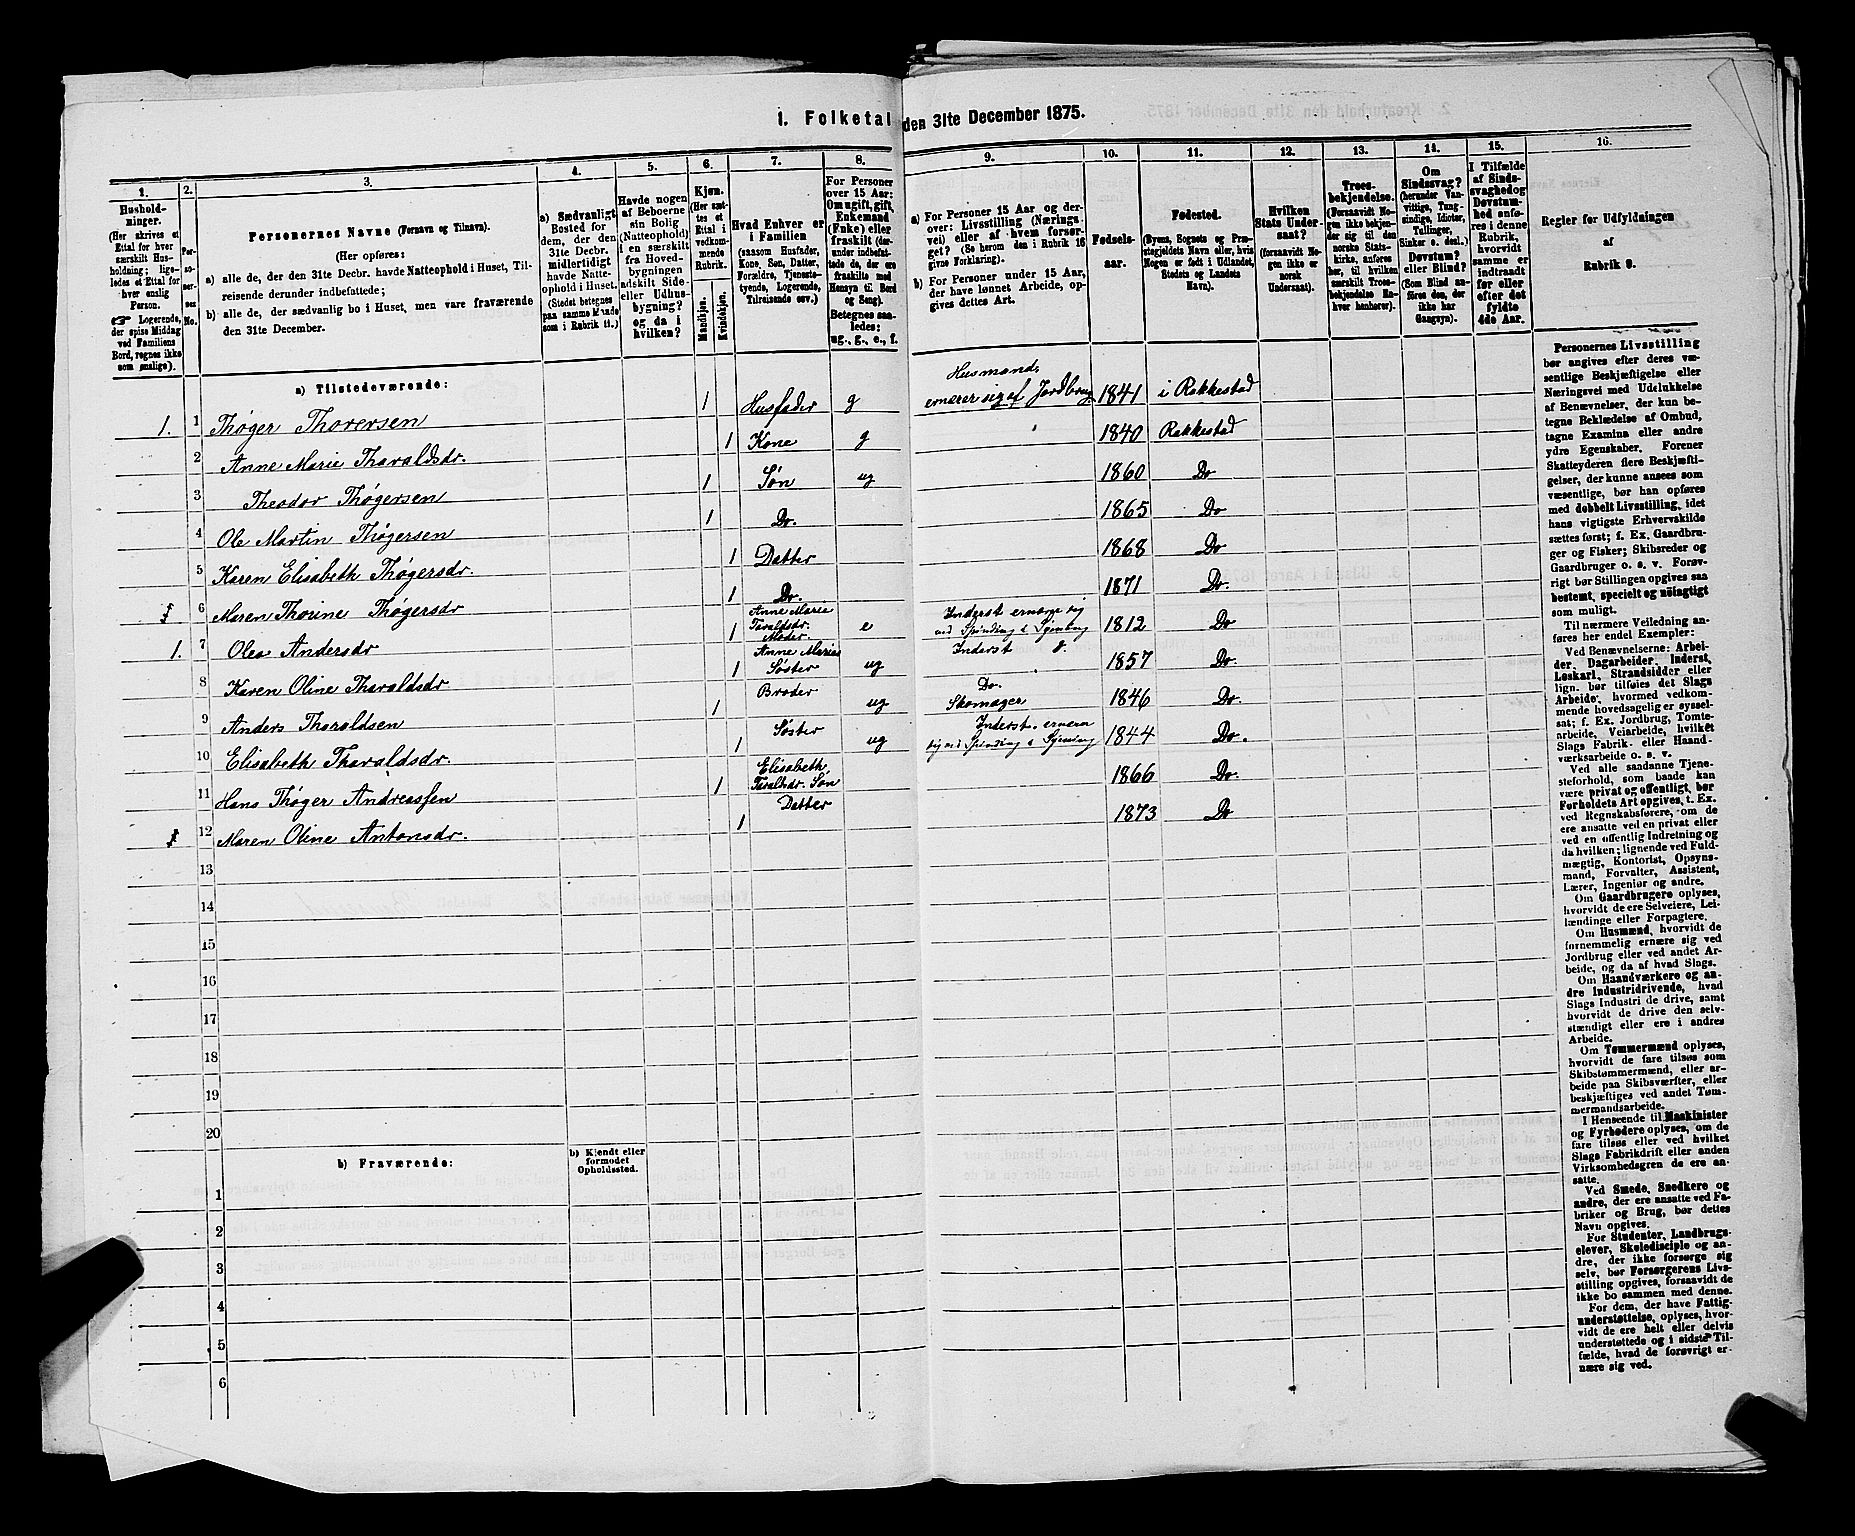 1. Folketal den 31te December 1875.
1. 2. 3. 4. 5. 6. 7. 8. 9. 10. 11. 12. 13. 14. 15. 16.
Husholdninger.
(Her skrives et
Ettal for hver
særskilt Husholdning;
ligeledes et Ettal for
hver enslig
Person.
Logerende,
der spise Middag
ved Familiens
Bord, regnes ikke
som enslige).
Personernes No.
Personernes Navne (Fornavn og Tilnavn).
(Her opføres:
a) alle de, der den 31te Decbr. havde Natteophold i Huset, Tilreisende derunder indbefattede;
b) alle de, der sædvanlig bo i Huset, men vare fraværende
den 31te December.
a) Sædvanligt
Bosted for
dem, der den
31te Decbr.
midlertidigt
havde Natteophold i Huset.
(Stedet betegnes
paa samme Maade
som i Rubrik 11.)
Havde nogen
af Beboerne
sin Bolig
(Natteophold)
i en særskilt
fra Hovedbygningen
adskilt Side-
eller Udhusbygning?
og da i
hvilken?
Kjøn.
(Her sættes et
Ettal i
vedkommende
Rubrik.
Mandkjøn.
Kvindekjøn.
Hvad Enhver er
i Familien
(saasom Husfader,
Kone, Søn, Datter,
Forældre, Tjenestetyende, Logerende,
Tilreisende osv.)
For Personer
over 15 Aar:
Om ugift, gift,
Enkemand
(Enke) eller
fraskilt (derunder indbefattede
de, der ere
fraskilte med
Hensyn til Bord
og Seng).
Betegnes saaledes:
ug., g., e., f.
a) For Personer 15 Aar og derover: Livsstilling (Næringsvei) eller af hvem forsørget? (Se herom den i Rubrik 16
givne Forklaring).
b) For Personer under 15 Aar,
der have lønnet Arbeide, opgives dettes Art.
Fødselsaar.
Fødested.
(Byens, Sognets og Præstegjeldets Navn eller, hvis
Nogen er født i Udlandet,
Stedets og Landets
Navn).
Hvilken
Stats Undersaat?
(forsaavidt Nogen ikke er
norsk
Undersaat).
Troesbekjendelse.
(Forsaavidt Nogen ikke bekjender sig til den
norske Statskirke, anføres
her, til hvilken
særskilt Troesbekjendelse Enhver henhører).
Om
Sindssvag?
(herunder Vanvittige, Tungsindige, Idioter,
Tullinger,
Sinker o. desl.)
Døvstum?
eller Blind?
(Som Blind anføres den, der
ikke har
Gangsyn).
I Tilfælde
af Sindssvaghed og
Døvstumhed anføres i denne
Rubrik,
hvorvidt
samme er
indtraadt
før eller
efter det
fyldte
4de Aar.
Regler for Udfyldningen
af
Rubrik 9.
a) Tilstedeværende:
1. 1 Thøger Thorersen 1 Husfader g Husmand, ernærer sig af Jordbrug 1841 i Rakkestad
2 Anne Marie Tharaldsdr. 1 Kone g 1840 Rakkestad
3 Theodor Thøgersen 1 Søn ug 1860 Do
4 Ole Martin Thøgersen 1 Do. 1865 Do
5 Karen Elisabeth Thøgersdr. 1 Datter 1868 Do
6 Maren Thorine Thøgersdr 1 Do. 1871 Do.
1. 7 Olea Andersdr 1 Anne Marie Taraldsdr. Moder e Inderst ernærer sig ved Spinding & Syening 1812 Do
8 Karen Oline Tharaldsdr 1 Anne Maries Søster ug Inderst 1857 Do.
9 Anders Tharaldsen 1 Broder ug Do. Skomager 1846 Do.
10 Elisabeth Tharaldsdr. 1 Søster ug Inderst. ernærer sig ved Spinding & Syening 1844 Do.
11 Hans Thøger Andreassen 1 Elisabeth Taraldsdr. Søn 1866 Do.
12 Maren Oline Antonsdr. 1 Datter 1873 Do
13
14
15
16
17
18
19
20
b) Fraværende:
b) Kjendt eller
formodet
Opholdssted.
1
2
3
4
5
6
Personernes Livsstilling
bør angives efter deres væsentlige Beskjæftigelse eller
Næringsvei med Udelukkelse
af Benævnelser, der kun betegne Beklædelse af Ombud,
tagne Examina eller andre
ydre Egenskaber. Forener
Skatteyderen flere Beskjæftigelser, der kunne ansees som
væsentlige, bør han opføres
med dobbelt Livsstilling, idet
hans vigtigste Erhvervskilde
sættes først; f. Ex. Gaardbruger og Fisker; Skibsreder og
Gaardbruger o. s. v. Forøvrigt bør Stillingen opgives saa
bestemt, specielt og nøiagtigt
som muligt.
Til nærmere Veiledning anføres her endel Exempler:
Ved Benævnelserne: Arbeider, Dagarbeider, Inderst,
Løskarl, Strandsidder eller
lign. bør tilføies det Slags
Arbeide, hvormed vedkommende hovedsagelig er sysselsat; f. Ex. Jordbrug, Tomtearbeide, Veiarbeide, hvilket
Slags Fabrik- eller Haandværksarbeide o. s. v.
Ved alle saadanne Tjenesteforhold, som baade kan
være privat og offentligt, bør
Forholdets Art opgives, t. Ex.
ved Regnskabsførere, om de
ere ansatte ved en privat eller
ved en offentlig Indretning og
da hvilken; lignende ved Fuldmægtig, Kontorist, Opsynsmand, Forvalter, Assistent,
Lærer, Ingeniør og andre.
Om Gaardbrugere oplyses,
hvorvidt de ere Selveiere, Leilændinge eller Forpagtere.
Om Husmænd, hvorvidt de
fornemmelig ernære sig ved
Jordbrug eller ved andet Arbeide, og da af hvad Slags.
Om Haandværkere og andre Industridrivende, hvad
Slags Industri de drive, samt
hvorvidt de drive den selvstændigt eller ere i andres
Arbeide.
Om Tømmermænd oplyses,
hvorvidt de fare tilsøs som
Skibstømmermænd, eller arbeide paa Skibsværfter, eller
beskjæftiges ved andet Tømmermandsarbeide.
I Henseende til Maskinister
og Fyrbødere oplyses, om de
fare tilsøs eller ved hvilket
Slags Fabrikdrift eller anden
Virksomhedsgren de ere ansatte.
Ved Smede, Snedkere og
andre, der ere ansatte ved Fabriker og Brug, bør dettes
Navn opgives.
For Studenter, Landbrugselever, Skoledisciple og andre, der ikke forsørge sig
selv, bør Forsørgerens Livsstilling opgives, forsaavidt de
ikke bo sammen med denne.
For dem, der have Fattigunderstøttelse, oplyses, hvorvidt de ere helt eller delvis
understøttede og i sidste Tilfælde, hvad de forøvrigt ernære sig ved.